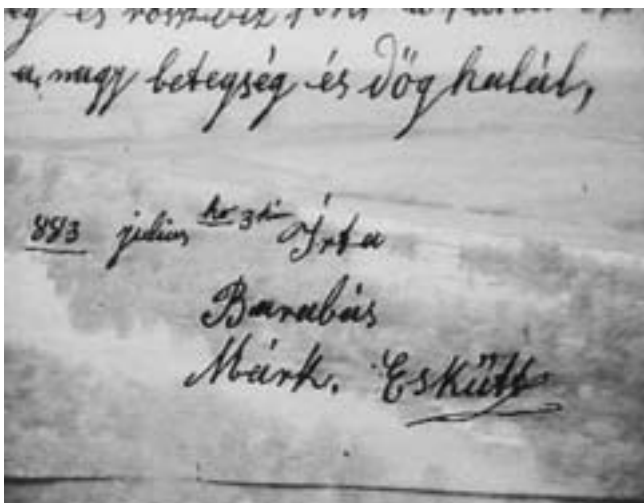 és
a nagy betegség és dög halál,
883 julius hó 3án Írta
Barabás
Márk. Eskütt